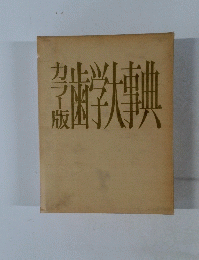 カラー版
歯学大事典